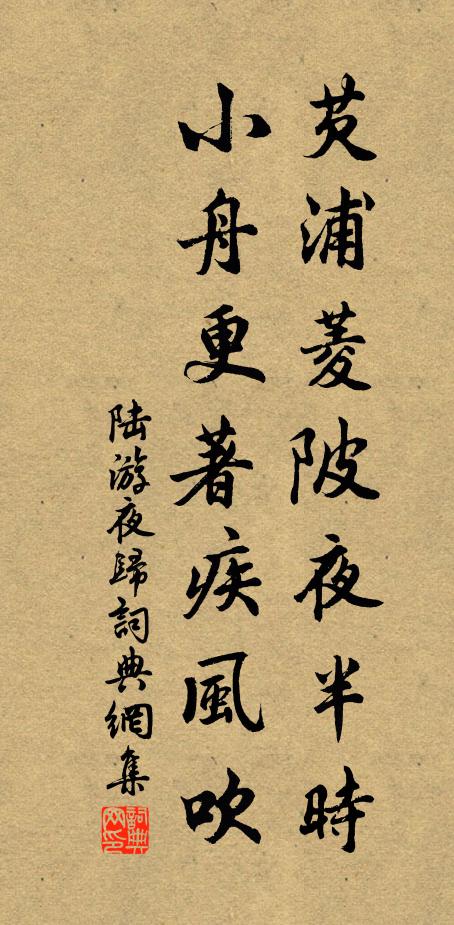 芡浦菱陂夜半時
小舟更著疾風吹
陆游夜歸詞典網集
詞典
网印